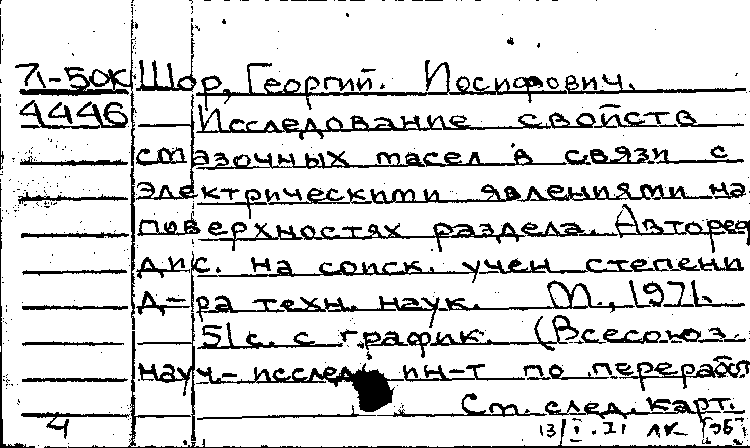 71-50к Шор, Георгий. Иосифович.
4446 Исследование свойств
смазочных масел в связи с
электрическими явлениями на
поверхностях раздела. Автореф
дис. на соиск. учен степени
д-ра техн. наук. М., 1971.
51 с. с график. (Всесоюз.
науч.- исслед. ин-т по перераб
См. след. карт.
4